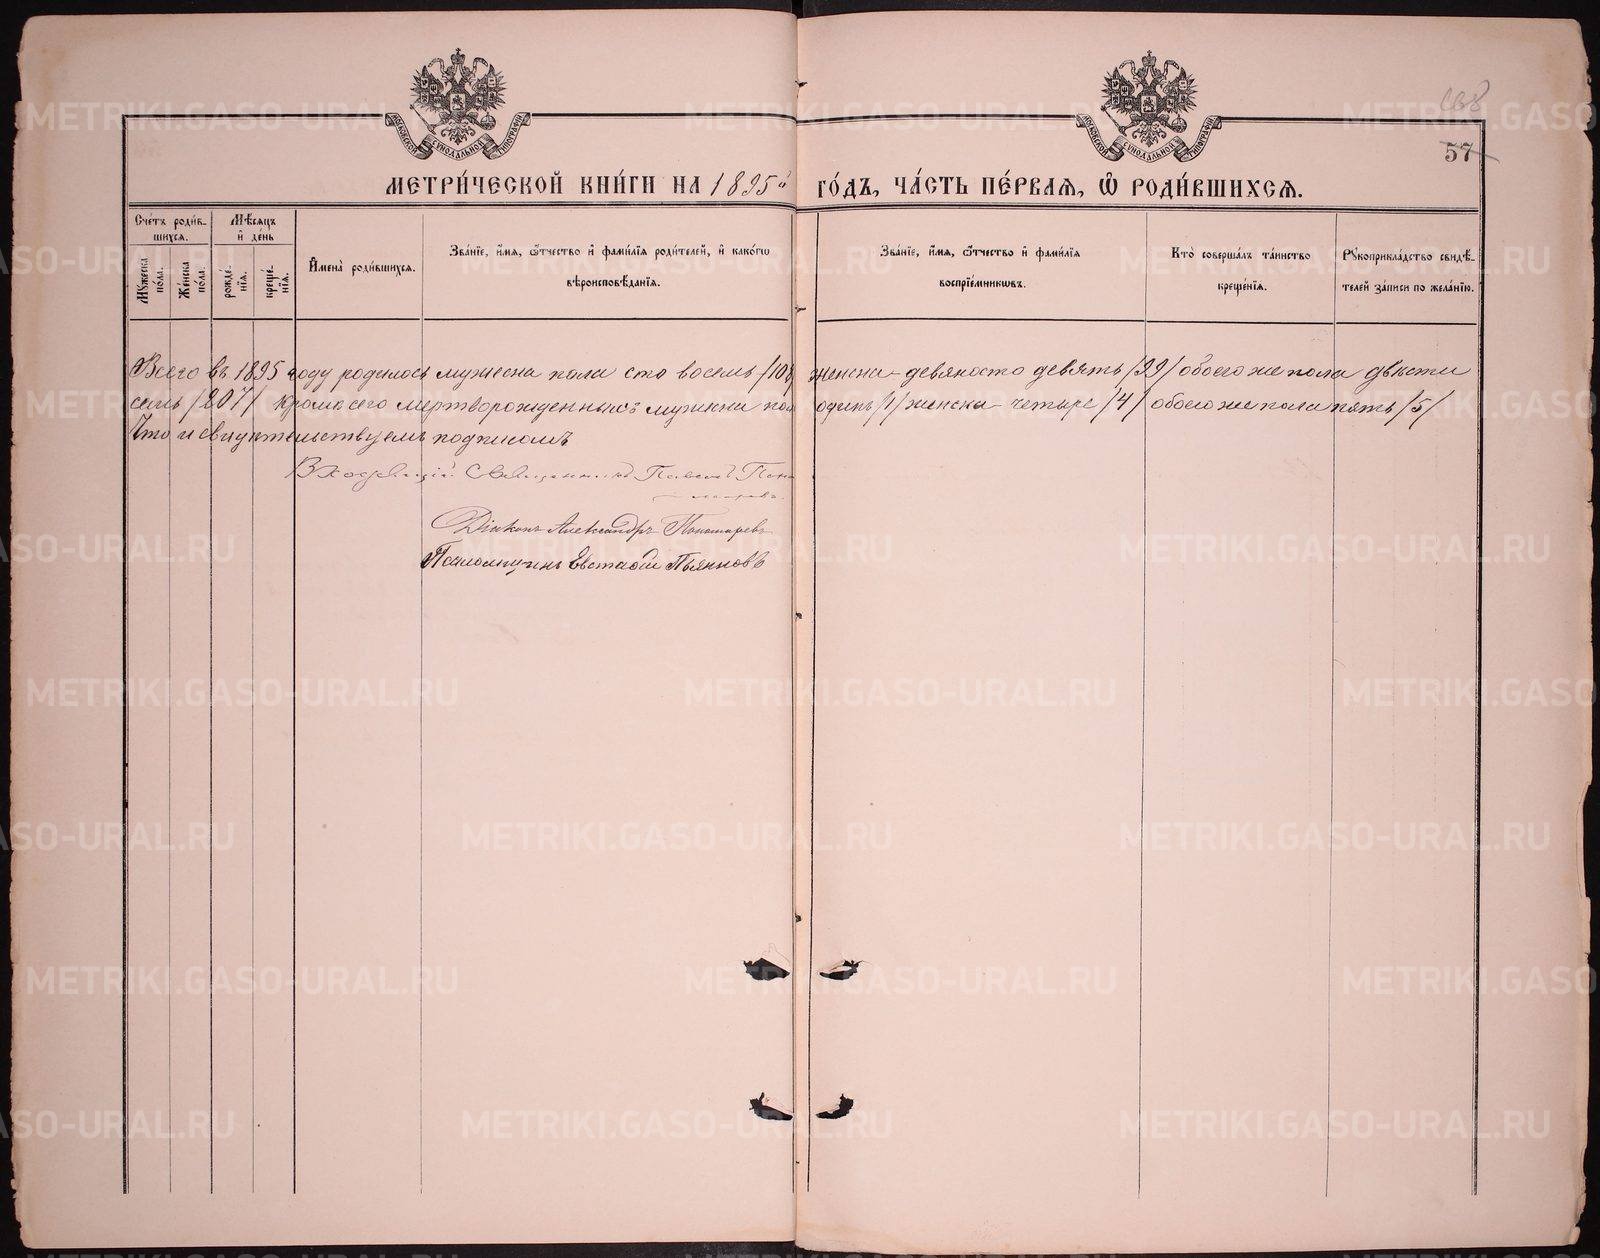 МОСКОВСКОЙ СѴНОДАЛЬНОЙ ТИПОГРАФІИ
МОСКОВСКОЙ СѴНОДАЛЬНОЙ ТИПОГРАФІИ
57
МЕТРИ́ЧЕСКОЙ КНИ́ГИ НА 1895й ГО́ДЪ, ЧА́СТЬ ПЕ́РВАѦ, Ѽ РОДИ́ВШИХСѦ.
Сче́тъ роди́в-
шихсѧ.
Мꙋ́жеска по́ла.
Же́нска по́ла.
Мѣ́сѧцъ
и҆ де́нь
рожде́-
нїѧ.
креще́-
нїѧ.
И҆мена̀ роди́вшихсѧ.
Зва́нїе, и҆́мѧ, ѻ҆́тчество и҆ фами́лїѧ роди́телей, и҆ како́гѡ
вѣроисповѣ́данїѧ.
Зва́нїе, и҆́мѧ, ѻ҆́тчество и҆ фами́лїѧ
воспрїе́мникѡвъ.
Кто̀ соверша́лъ та́инство
креще́нїѧ.
Рꙋкоприкла́дство свидѣ́-
телей за́писи по жела́нїю.
Всего въ 1895 году родилось мужеска пола сто восемь /108 женска – девяносто девять /99/ обоего же пола двѣсти
семь /207/ кромѣ сего мертворожденныхъ мужска пол одинъ /1/ женска – четыре /4/ обоего же пола пять /5/
Что и свидѣтельствуемъ подписомъ
Священникъ Павелъ Поно-
маревъ.
Діаконъ Александръ Пономаревъ
Псаломщикъ Евстафій Пьянковъ
METRIKI.GASO-URAL.RU